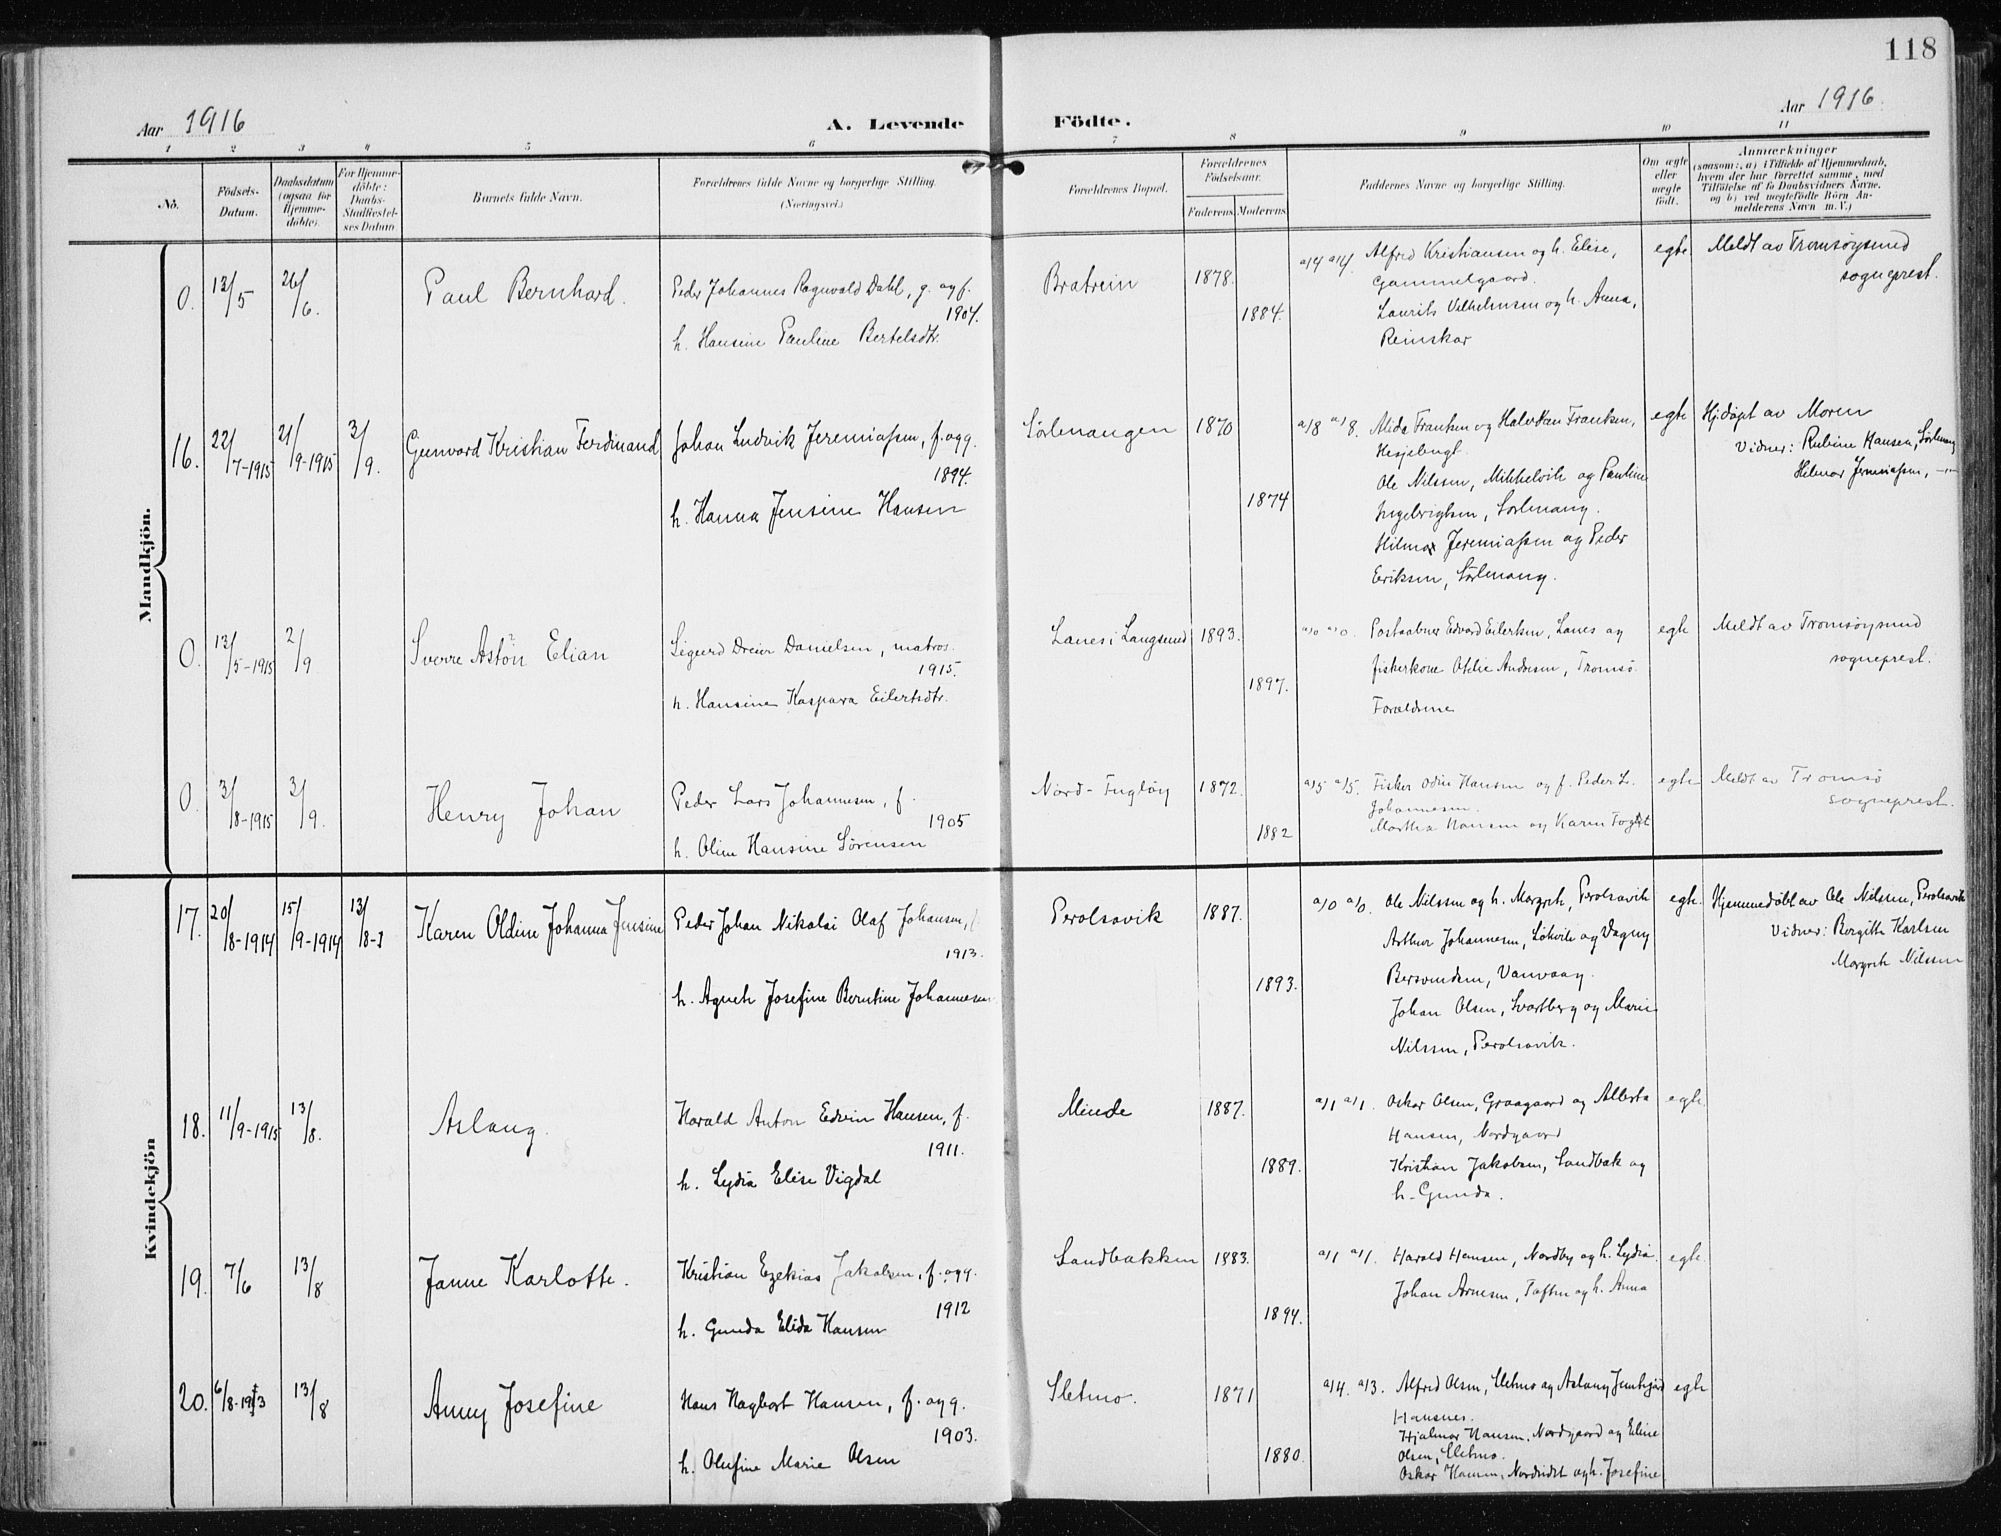 118
Aar 1916
A. Levende Födte.
Aar 1916.
1 2 3 4 5 6 7 8 9 10 11
No.
Födsels-Datum.
Daabsdatum (ogsaa for Hjemme-döbte).
For Hjemme-döbte: Daabs-Stadfæstel-ses Datum
Barnets fulde Navn.
Forældrenes fulde Navne og borgerlige Stilling.
(Næringsvei.)
Forældrenes Bopæl.
Forældrenes Födselsaar.
Faderens. Moderens.
Faddernes Navne og borgerlige Stilling.
Om ægte eller uægte födt.
Anmærkninger
(saasom: a) i Tilfælde af Hjemmedaab,
hvem der har forrettet samme, med
Tilföielse af to Daabsvidners Navne,
og b) ved uægtefödte Börn An-
melderens Navn m. V.)
Mandkjön.
0. 13/5 26/6. Paul Bernhard.
Peder Johannes Ragnvald Dahl, g. og f.
1904.
h. Hansine Pauline Bertelsdtr.
Bratrein 1878. 1884.
Alfred Kristiansen og h. Elise,
Gammelgaard.
Laurits Vilhelmsen og h. Anna,
Reinskar
egte
Meldt av Tromsøysund
sogneprest.
16. 22/7-1915 21/9-1915 3/9. Gunvard Kristian Ferdinand
Johan Ludvik Jeremiassen, f. og g.
1894.
h. Hanna Jensine Hansen
Sörlenangen 1870 1874
a/8 a/8. Alida Franksen og Halvdan Franksen,
Hesjebugt.
Ole Nilssen, Mikkelvik og Pauline
Ingebrigtsen, Sörlenang.
Hilmar Jeremiassen og Peder
Eeriksen, Sörlenang.
egte
Hjdøpt av Moren
Vidner: Rubine Hansen, Sörlenang
Hilmar Jeremiassen, —"—
0. 13/5-1915 2/9 Sverre Astön Elian
Sigurd Dreier Danielsen, matros.
1915.
h. Hansine Kaspara Eilertsdtr.
Lanes i Langsund 1893. 1897.
Postaabner Edvard Eilertsen, Lanes og
fiskerkone Otelie Andresen, Tromsö.
Forældrene
egte
Meldt av Tromsøysund
sogneprest.
0. 3/8-1915 3/9. Henry Johan
Peder Lars Johannesen, f.
1905
h. Oline Hansine Sørensen
Nord-Fugløy 1872. 1882
a/5 a/5. Fisker Odin Hansen og f. Peder L.
Johannesen.
Martha Hansen og Karen Fogdt
egte
Meldt av Tromsø
sogneprest.
Kvindekjön
17. 20/8-1914 15/9-1914 13/8 Karen Oldine Johanna Jensine
Peder Johan Nikolai Olaf Johansen, f.
1913.
h. Agneth Josefine Berntine Johannesen
Perolsavik 1887. 1893.
Ole Nilssen og h. Margreth, Perolsavik
Arthur Johannesen, Lökvik og Dagny
Bersvendsen, Vanvaag.
Johan Olsen, Svartberg og Marie
Nilssen, Perolsavik.
egte.
Hjemmedøbt av Ole Nilssen, Perolsavik
Vidner: Borgitte Karlsen
Margreth Nilssen
18. 11/9-1915 13/8. Aslaug.
Harald Anton Edvin Hansen, f.
1911.
h. Lydia Elise Vigdal
Minde 1887. 1889.
a/1 a/1. Oskar Olsen, Graagaard og Alberta
Hansen, Nordgaard
Kristian Jakobsen, Sandbak og
h. Gunda.
egte.
19. 7/6 13/8 Janne Karlotte.
Kristian Ezekias Jakobsen, f. og g.
1912
h. Gunda Elida Hansen
Sandbakken 1883. 1894.
a/1 a/1. Harald Hansen, Nordby og h. Lydia
Johan Arnesen, Toften og h. Anna
egte.
20. 6/8-1913 13/8 Anny Josefine
Hans Hagbart Hansen, f. og g.
1903.
h. Olufine Marie Olsen
Sletmo. 1871 1880.
a/4. a/3. Alfred Olsen, Sletmo og Aslaug
Hansnes.
Hjalmar Hansen, Nordgaard og Eline
Olsen, Sletmo.
Oskar Hansen, Nordeidet og h. Josefine
egte